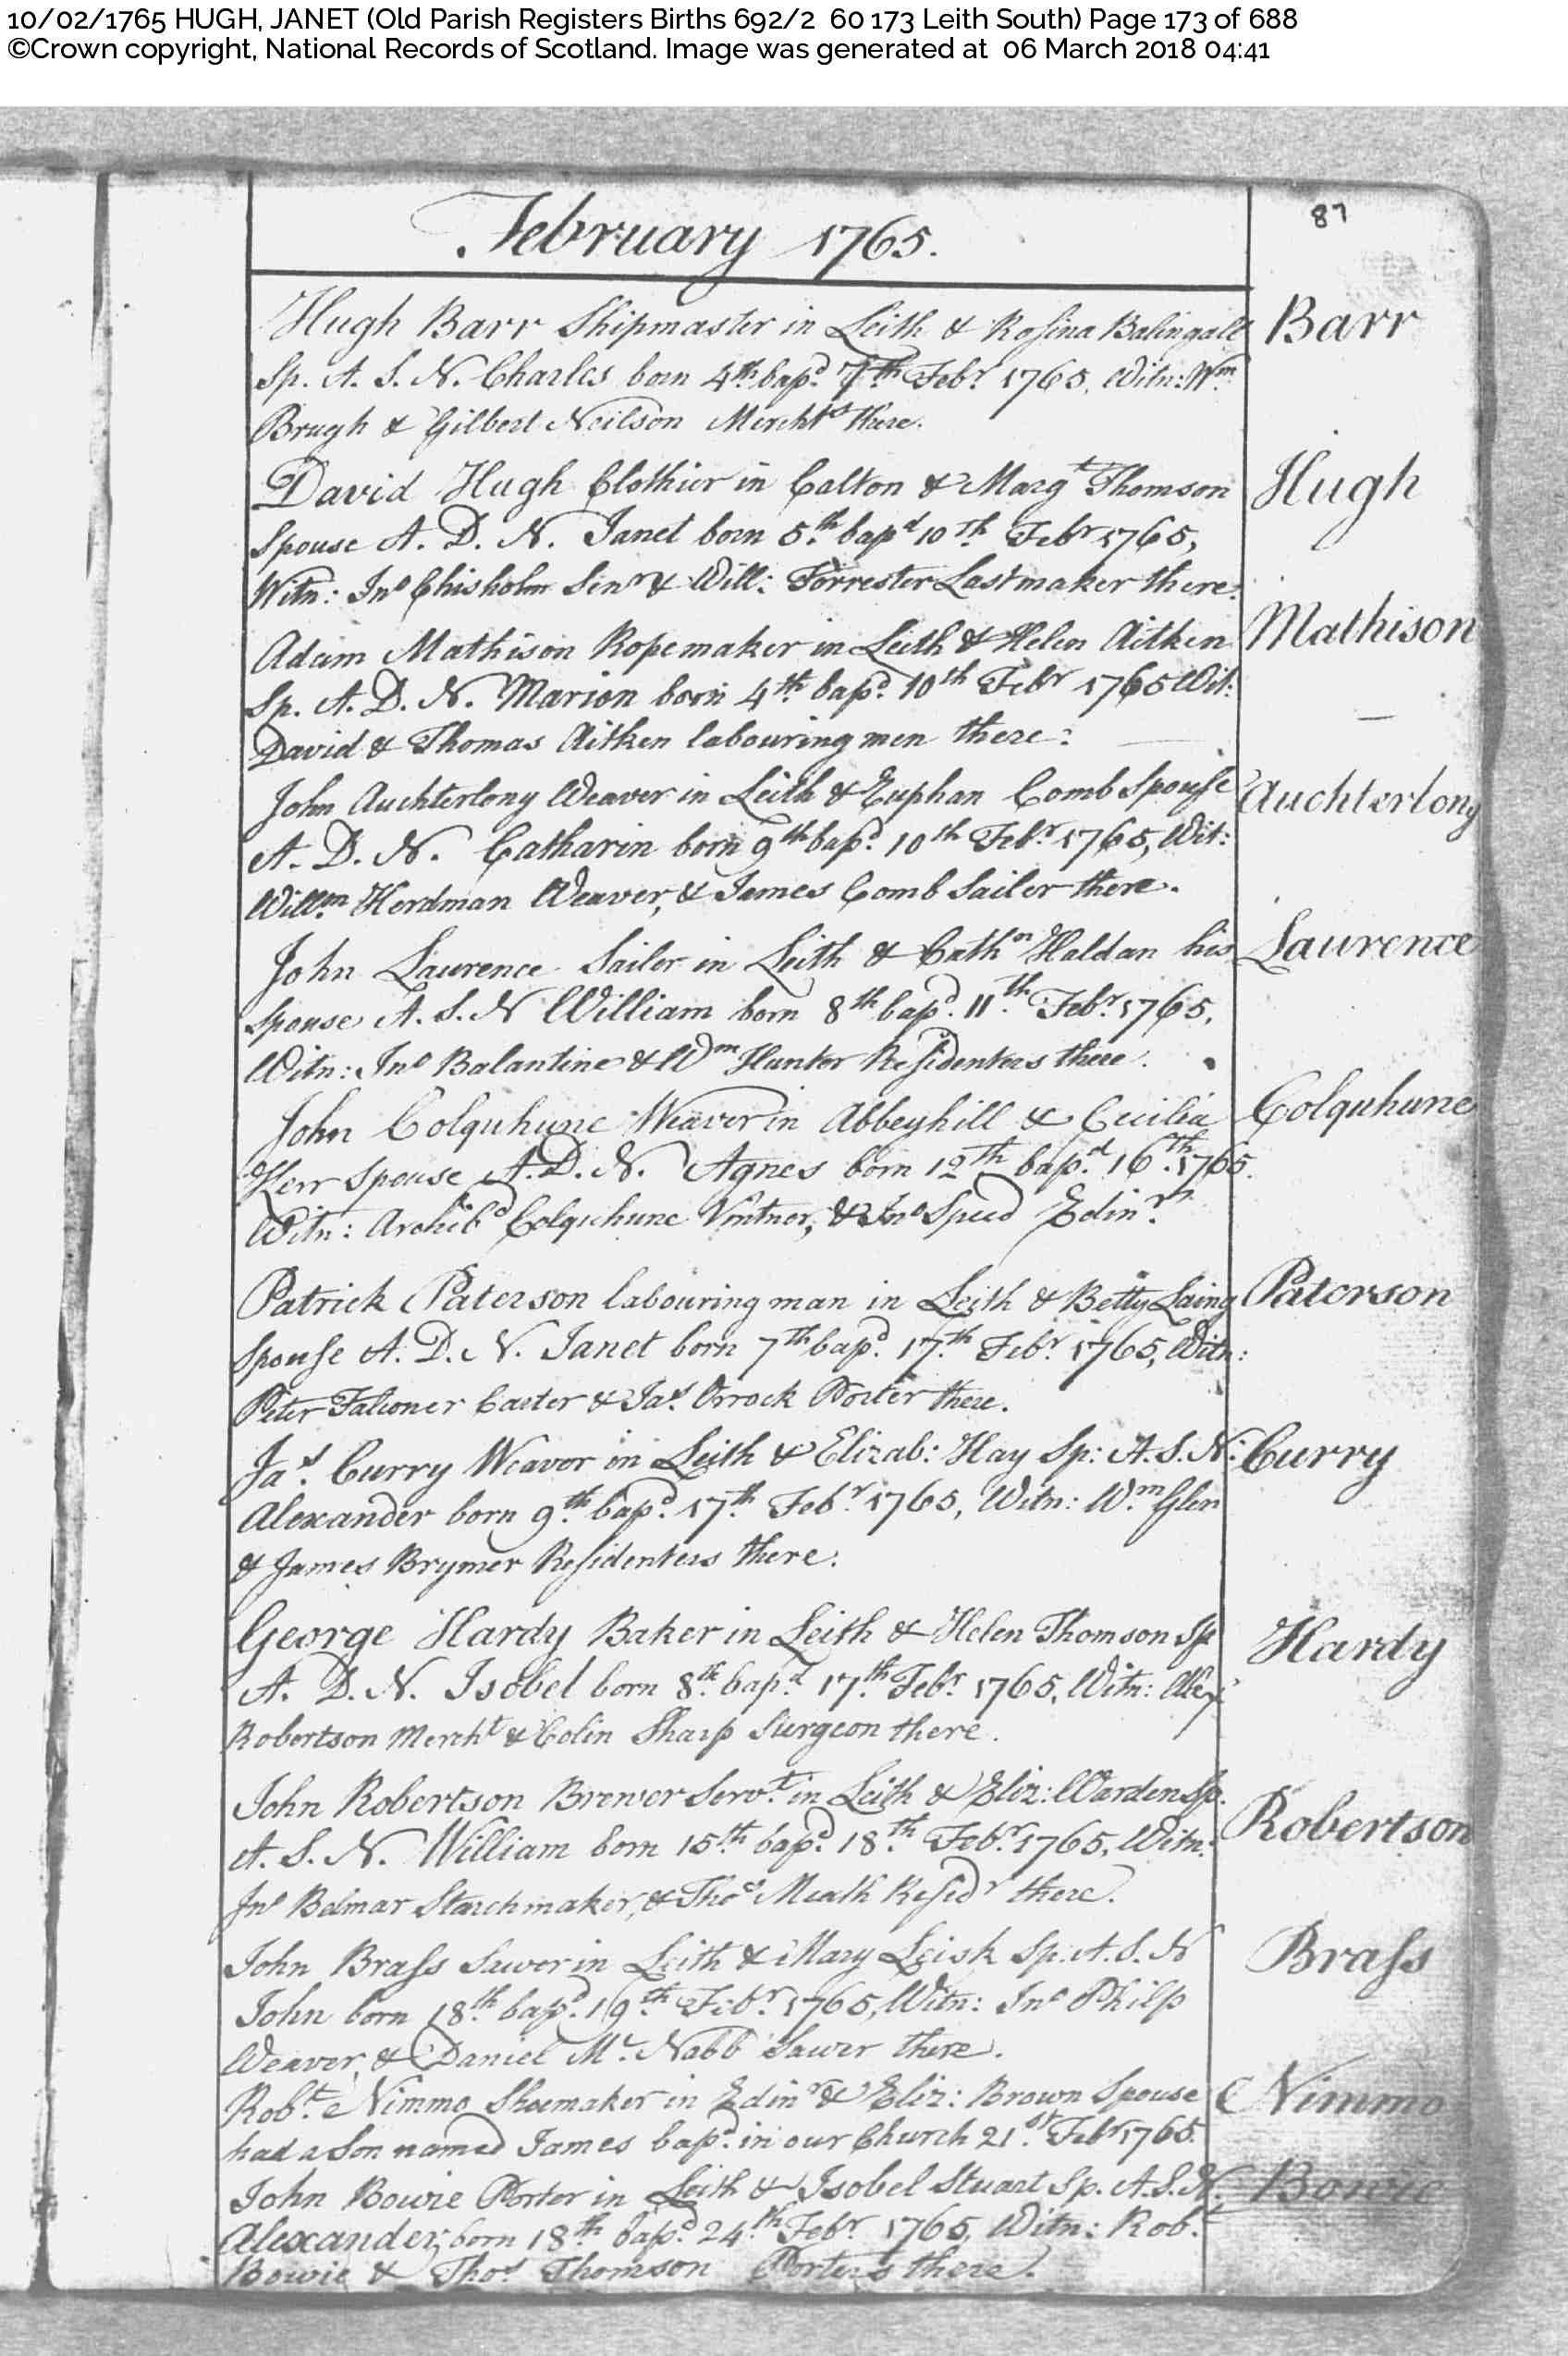 10/02/1765 HUGH, JANET (Old Parish Registers Births 692/2 60 173 Leith South) Page 173 of 688
©Crown copyright, National Records of Scotland. Image was generated at 06 March 2018 04:41
87
February 1765.
Hugh Barr Shipmaster in Leith & Rosina Balingall Barr
Sp. A. S. N. Charles born 4th bapd. 7th Febr. 1765, Witn: Wm.
Brugh & Gilbert Neilson Merchts there.
David Hugh Clothier in Calton & Margt Thomson Hugh
Spouse A. D. N. Janet born 5th bapd 10th Febr 1765,
Witn: Jno Chisholm Senr & Will: Forrester Lastmaker there.
Adam Mathison Ropemaker in Leith & Helen Aitken Mathison
Sp. A. D. N. Marion born 4th bapd. 10th Febr 1765 Wit:
David & Thomas Aitken labouring men there:
John Auchterlony Weaver in Leith & Euphan Comb Spouse Auchterlony
A. D. N. Catharin born 9th bapd. 10th Febr. 1765, Wit:
Willm Herdman Weaver, & James Comb Sailor there.
John Laurence Sailor in Leith & Cathn Haldan his Laurence
Spouse A. S. N William born 8th bapd. 11th Febr. 1765,
Witn: Jno Balantine & Wm Hunter Residenters there.
John Colquhune Weaver in Abbeyhill & Cecilia Colquhune
Kerr Spouse A. D. N. Agnes born 12th bapd. 16th 1765.
Witn: Archibd Colquhune Vintner, & Jno Speed Edinr.
Patrick Paterson labouring man in Leith & Betty Laing Paterson
Spouse A. D. N. Janet born 7th bapd. 17th Febr. 1765, Witn:
Peter Falconer Carter & Jas. Orrock Porter there.
Jas. Curry Weaver in Leith & Elizab: Hay Sp: A. S. N: Curry
Alexander born 9th bapd. 17th Febr. 1765, Witn: Wm Glen
& James Brymer Residenters there.
George Hardy Baker in Leith & Helen Thomson Sp Hardy
A. D. N. Isobel born 8th bapd. 17th Febr. 1765, Witn: Alexr
Robertson Mercht & Colin Sharp Surgeon there.
John Robertson Brewer Servt. in Leith & Eliz: Warden Sp. Robertson
A. S. N. William born 15th bapd. 18th Febr. 1765, Witn:
Jno Belmar Starchmaker, & Thos Meath Residr there.
John Brass Sawer in Leith & Mary Leisk Sp. A. S. N Brass
John born 18th bapd. 19th Febr. 1765, Witn: Jno Philp
Weaver, & Daniel Mc. Nabb Sawer there.
Robt. Nimmo Shoemaker in Edinr & Eliz: Brown Spouse Nimmo
had a Son named James bapd. in our Church 21st. Febr 1765.
John Bowie Porter in Leith & Isobel Stuart Sp. A. S. N. Bowie
Alexander, born 18th bapd. 24th Febr. 1765, Witn: Robt
Bowie & Thos Thomson Porters there.